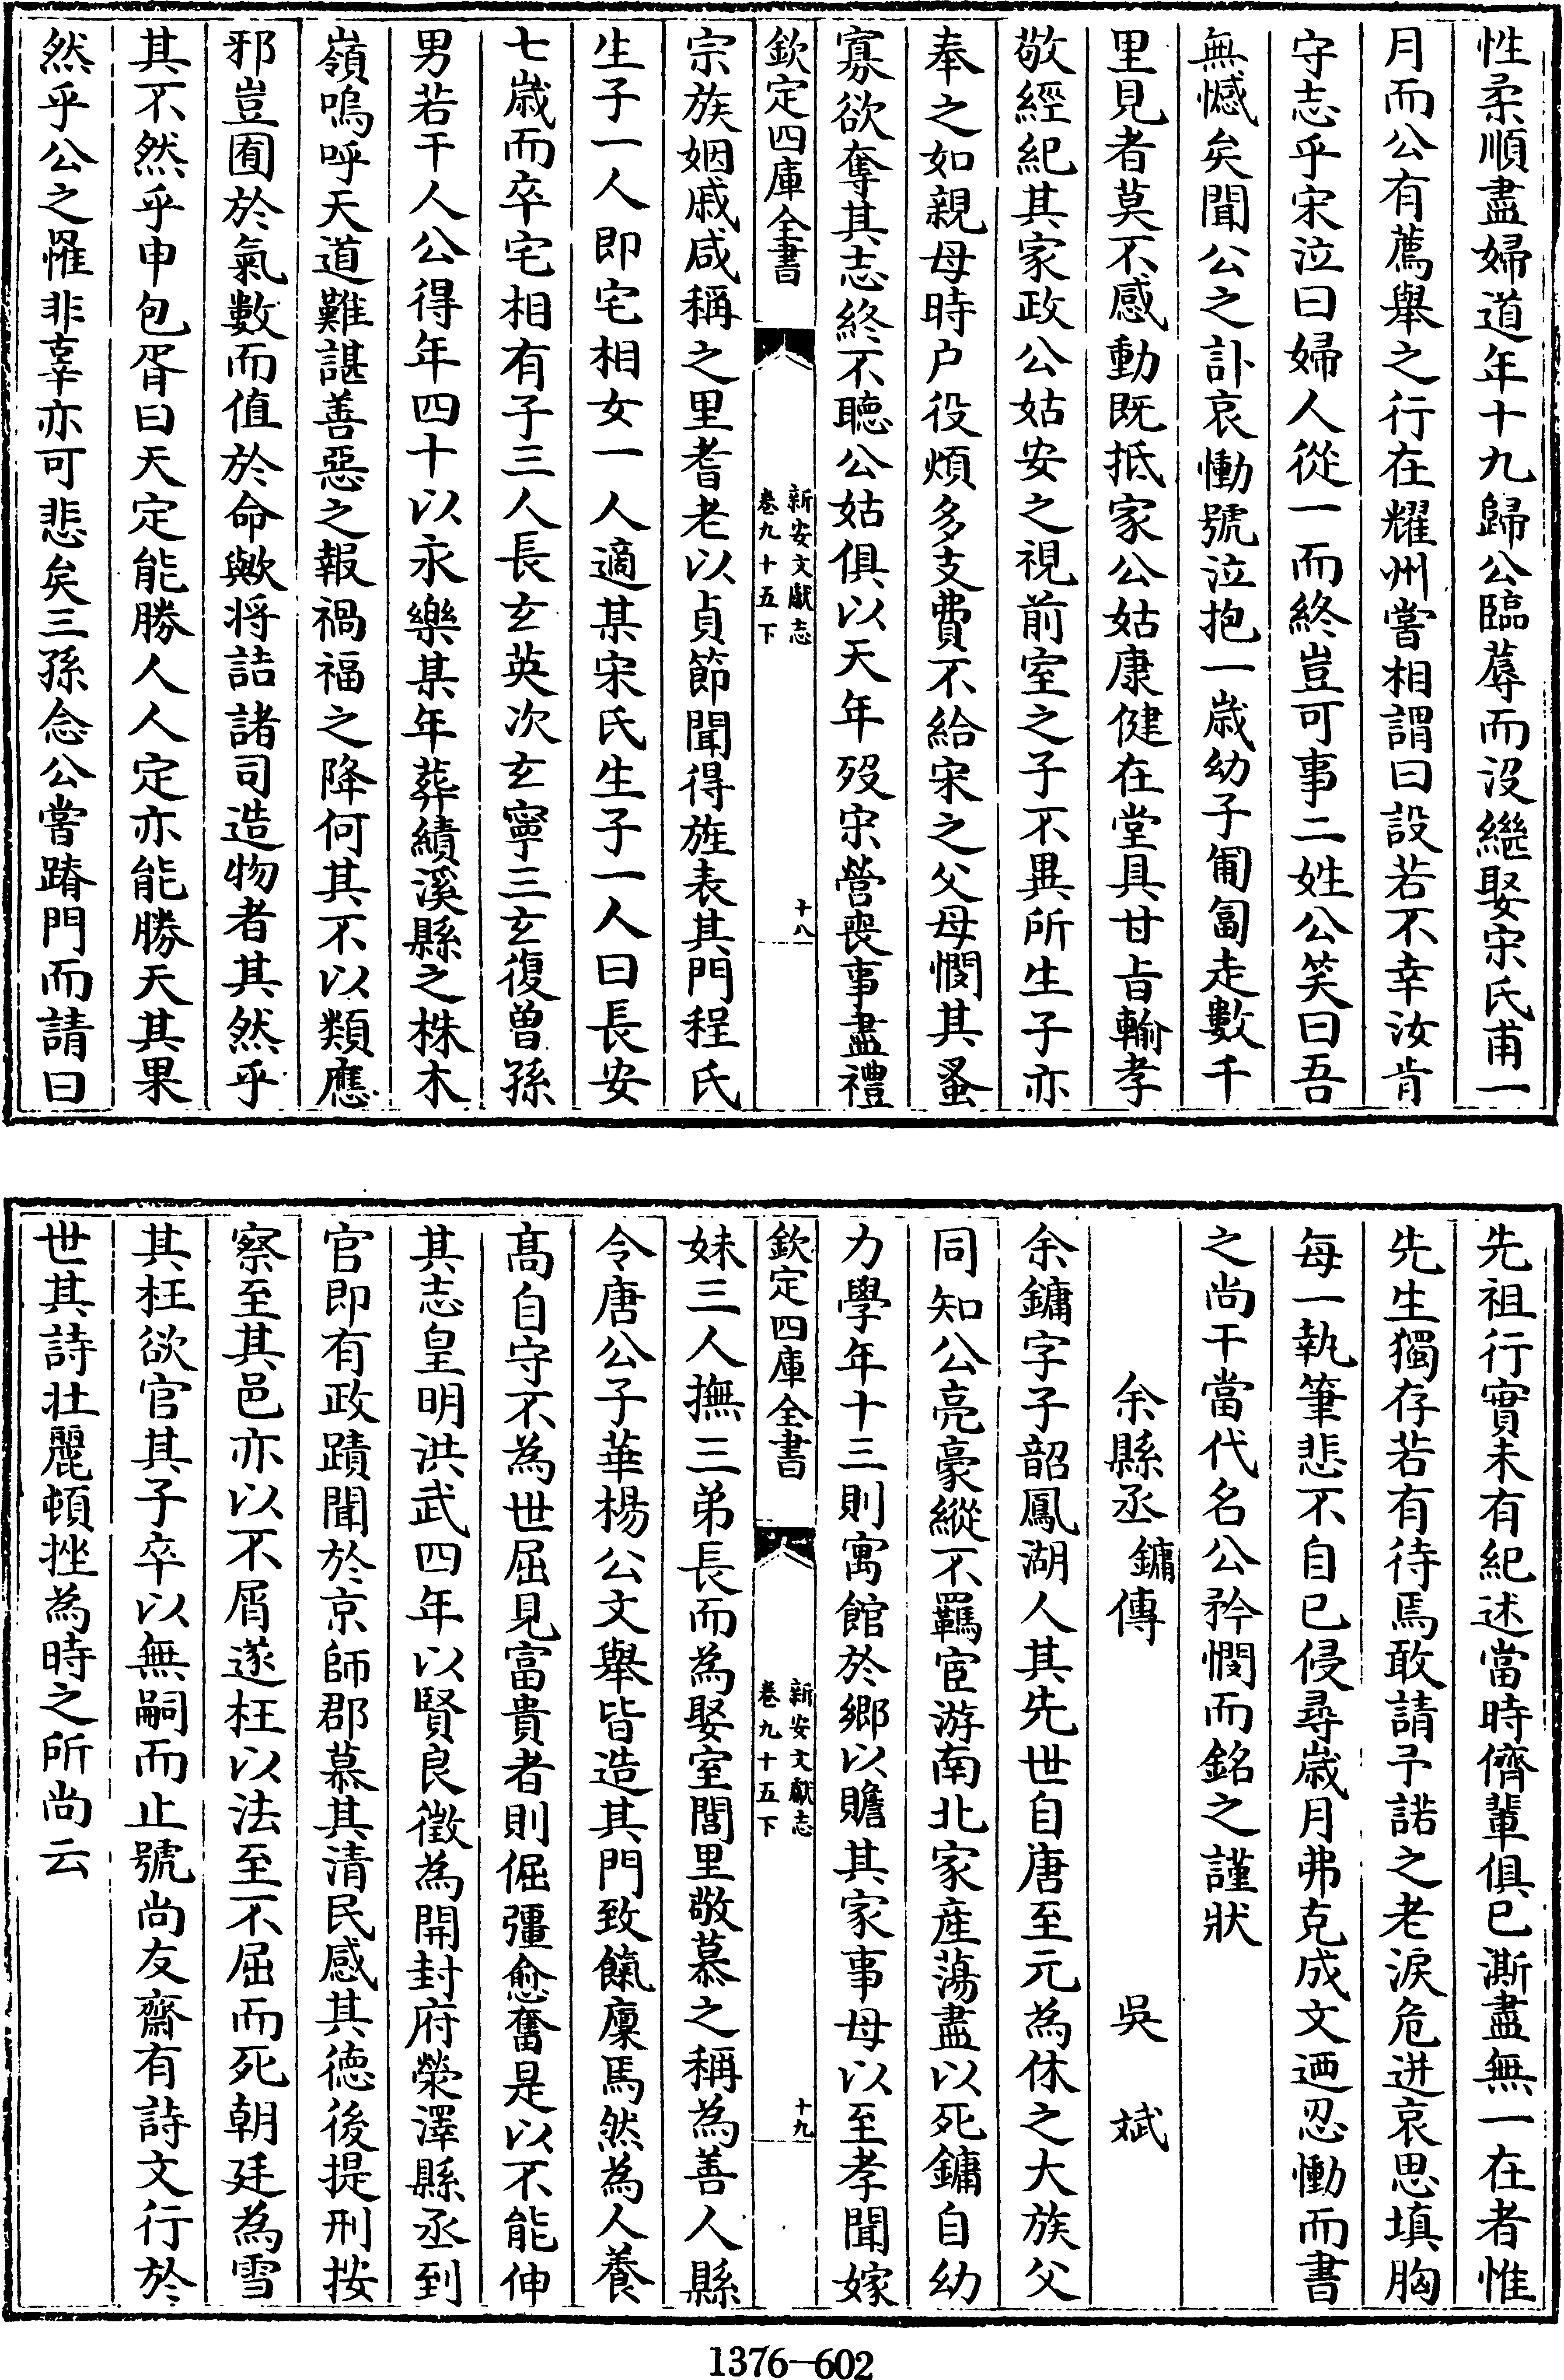 性柔順盡婦道年十九歸公臨蓐而沒繼娶宋氏甫一
月而公有薦舉之行在耀州嘗相謂曰設若不幸汝肯
守志乎宋泣曰婦人從一而終豈可事二姓公笑曰吾
無憾矣聞公之訃哀慟號泣抱一歳幼子匍匐走數千
里見者莫不感動既抵家公姑康健在堂具甘旨輸孝
敬經紀其家政公姑安之視前室之子不異所生子亦
奉之如親母時户役煩多支費不給宋之父母憫其蚤
寡欲奪其志終不聽公姑俱以天年歿宋營喪事盡禮
欽定四庫全書
新安文獻志
卷九十五下
十八
宗族姻戚咸稱之里耆老以貞節聞得旌表其門程氏
生子一人即宅相女一人適某宋氏生子一人曰長安
七歳而卒宅相有子三人長玄英次玄寧三玄復曽孫
男若干人公得年四十以永樂某年葬績溪縣之株木
嶺嗚呼天道難諶善惡之報禍福之降何其不以類應
邪豈囿於氣數而值於命歟将詰諸司造物者其然乎
其不然乎申包胥曰天定能勝人人定亦能勝天其果
然乎公之罹非辜亦可悲矣三孫念公嘗踖門而請曰
先祖行實未有紀述當時儕輩俱已澌盡無一在者惟
先生獨存若有待焉敢請予諾之老淚危迸哀思填胸
每一執筆悲不自已侵尋歳月弗克成文迺忍慟而書
之尚干當代名公矜憫而銘之謹狀
余縣丞鏞傳 吳 斌
余鏞字子韶鳳湖人其先世自唐至元為休之大族父
同知公亮豪縱不羈宦游南北家産蕩盡以死鏞自幼
力學年十三則寓館於鄉以贍其家事母以至孝聞嫁
欽定四庫全書
新安文獻志
卷九十五下
十九
妹三人撫三弟長而為娶室閭里敬慕之稱為善人縣
令唐公子華楊公文舉皆造其門致餼廩焉然為人養
髙自守不為世屈見富貴者則倔彊愈奮是以不能伸
其志皇明洪武四年以賢良徵為開封府滎澤縣丞到
官即有政蹟聞於京師郡慕其清民感其徳後提刑按
察至其邑亦以不屑遂枉以法至不屈而死朝廷為雪
其枉欲官其子卒以無嗣而止號尚友齋有詩文行於
世其詩壯麗頓挫為時之所尚云
1376—602